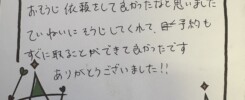 おそうじ依頼をして良かったなと思いました
ていねいにそうじしてくれて、予約も
すぐに取ることができて良かったです
ありがとうございました!!